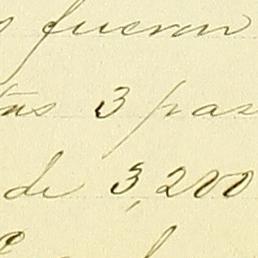 s fueron
tas 3 pas
de 3,200